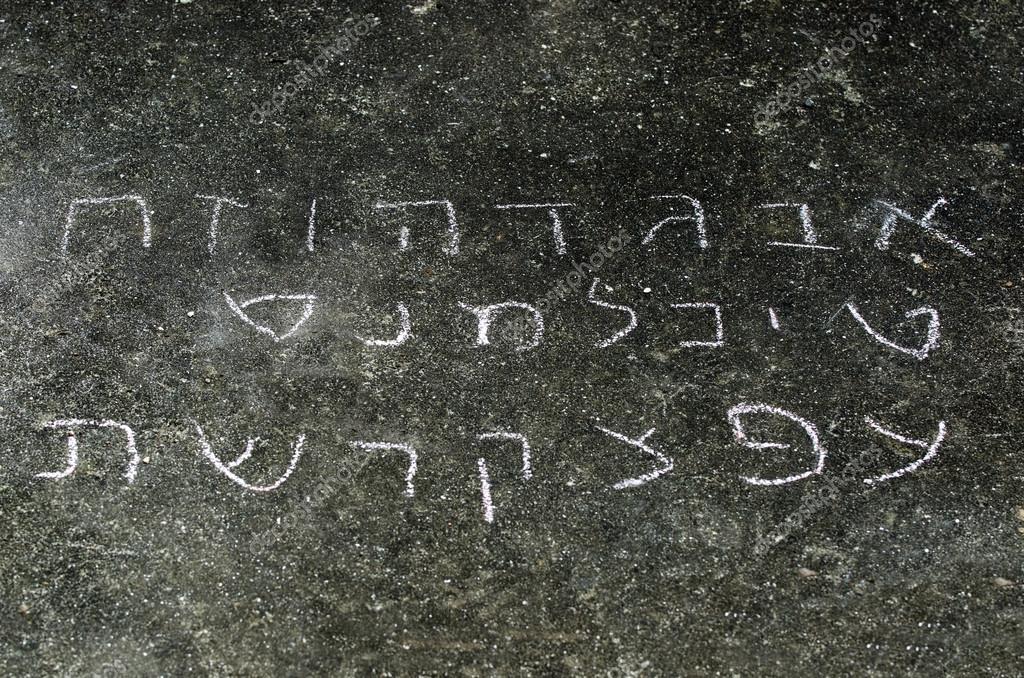 אבגדהוזח
טיכלמנס
עפצקרשת